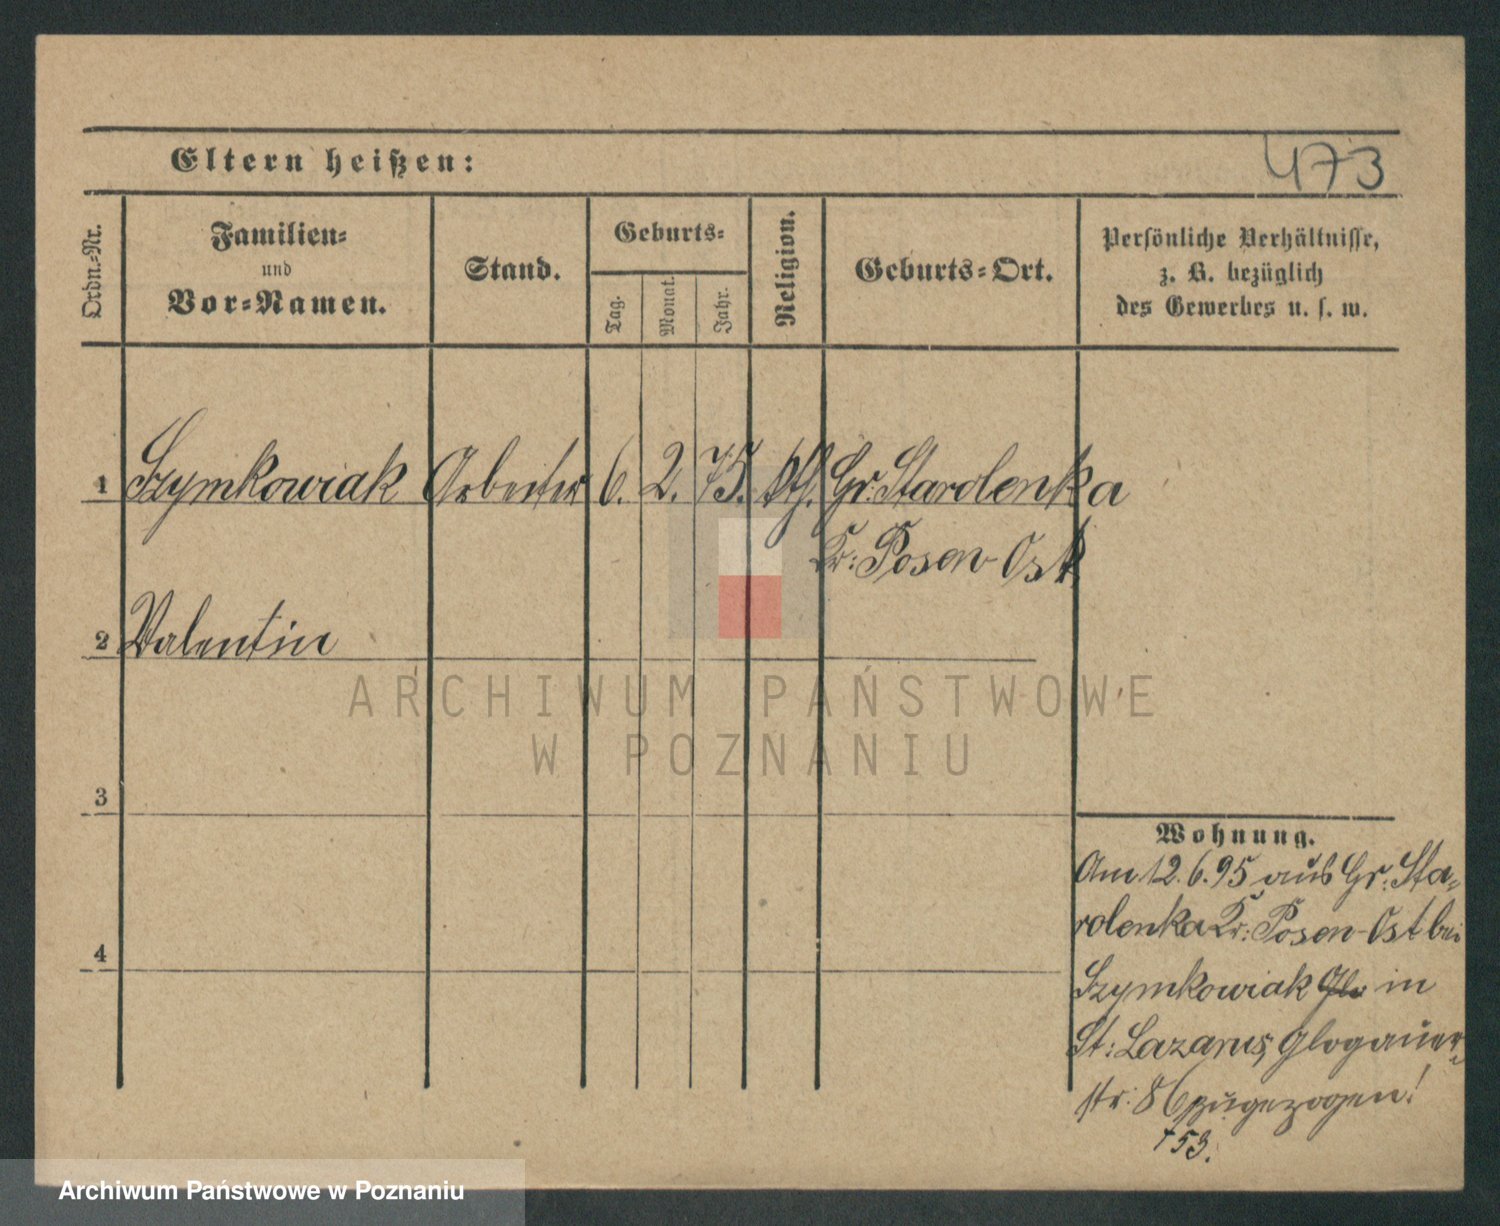 Eltern heißen:
473
Ordn.-Nr.
Familien-
und
Vor-Namen.
Stand.
Geburts-
Tag.
Monat.
Jahr.
Religion.
Geburts-Ort.
Persönliche Verhältnisse,
z. B. bezüglich
des Gewerbes u. s. w.
1 Szymkowiak Arbeiter 6. 2. 75. kth. Gr. Starolenka
Kr: Posen-Ost
2 Valentin
ARCHIWUM PAŃSTWOWE
W POZNANIU
3
4
Wohnung.
Am 12.6.95 aus Gr: Sta-
rolenka Kr: Posen-Ost bei
Szymkowiak Glo in
St: Lazarus, Glogauer-
str: 86 zugezogen!
53.
Archiwum Państwowe w Poznaniu